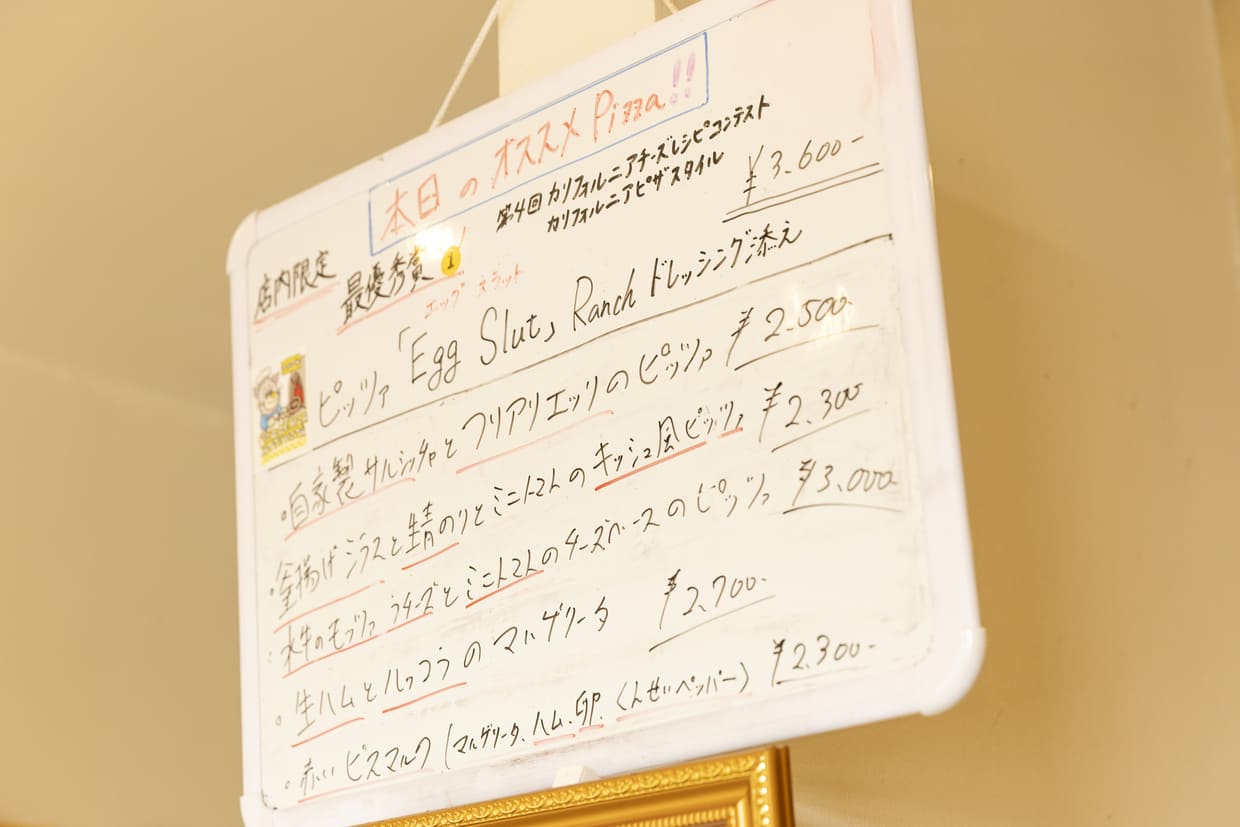 本日のオススメPizza!!
第4回カリフォルニアチーズレシピコンテスト
カリフォルニアピザスタイル
¥3.600-
店内限定 最優秀賞 1
エッグ スラット
ピッツァ「Egg Slut」Ranchドレッシング添え
・自家製サルシッチャとフリアリエッリのピッツァ ¥2.500-
・釜揚げシラスと青のりとミニトマトのキッシュ風ピッツァ ¥2.300
・水牛のモッツァラチーズとミニトマトのチーズベースのピッツァ ¥3.000-
・生ハムとルッコラのマルゲリータ ¥2.700-
・赤いビスマルク(マルゲリータ、ハム、卵、くんせいペッパー) ¥2.300-